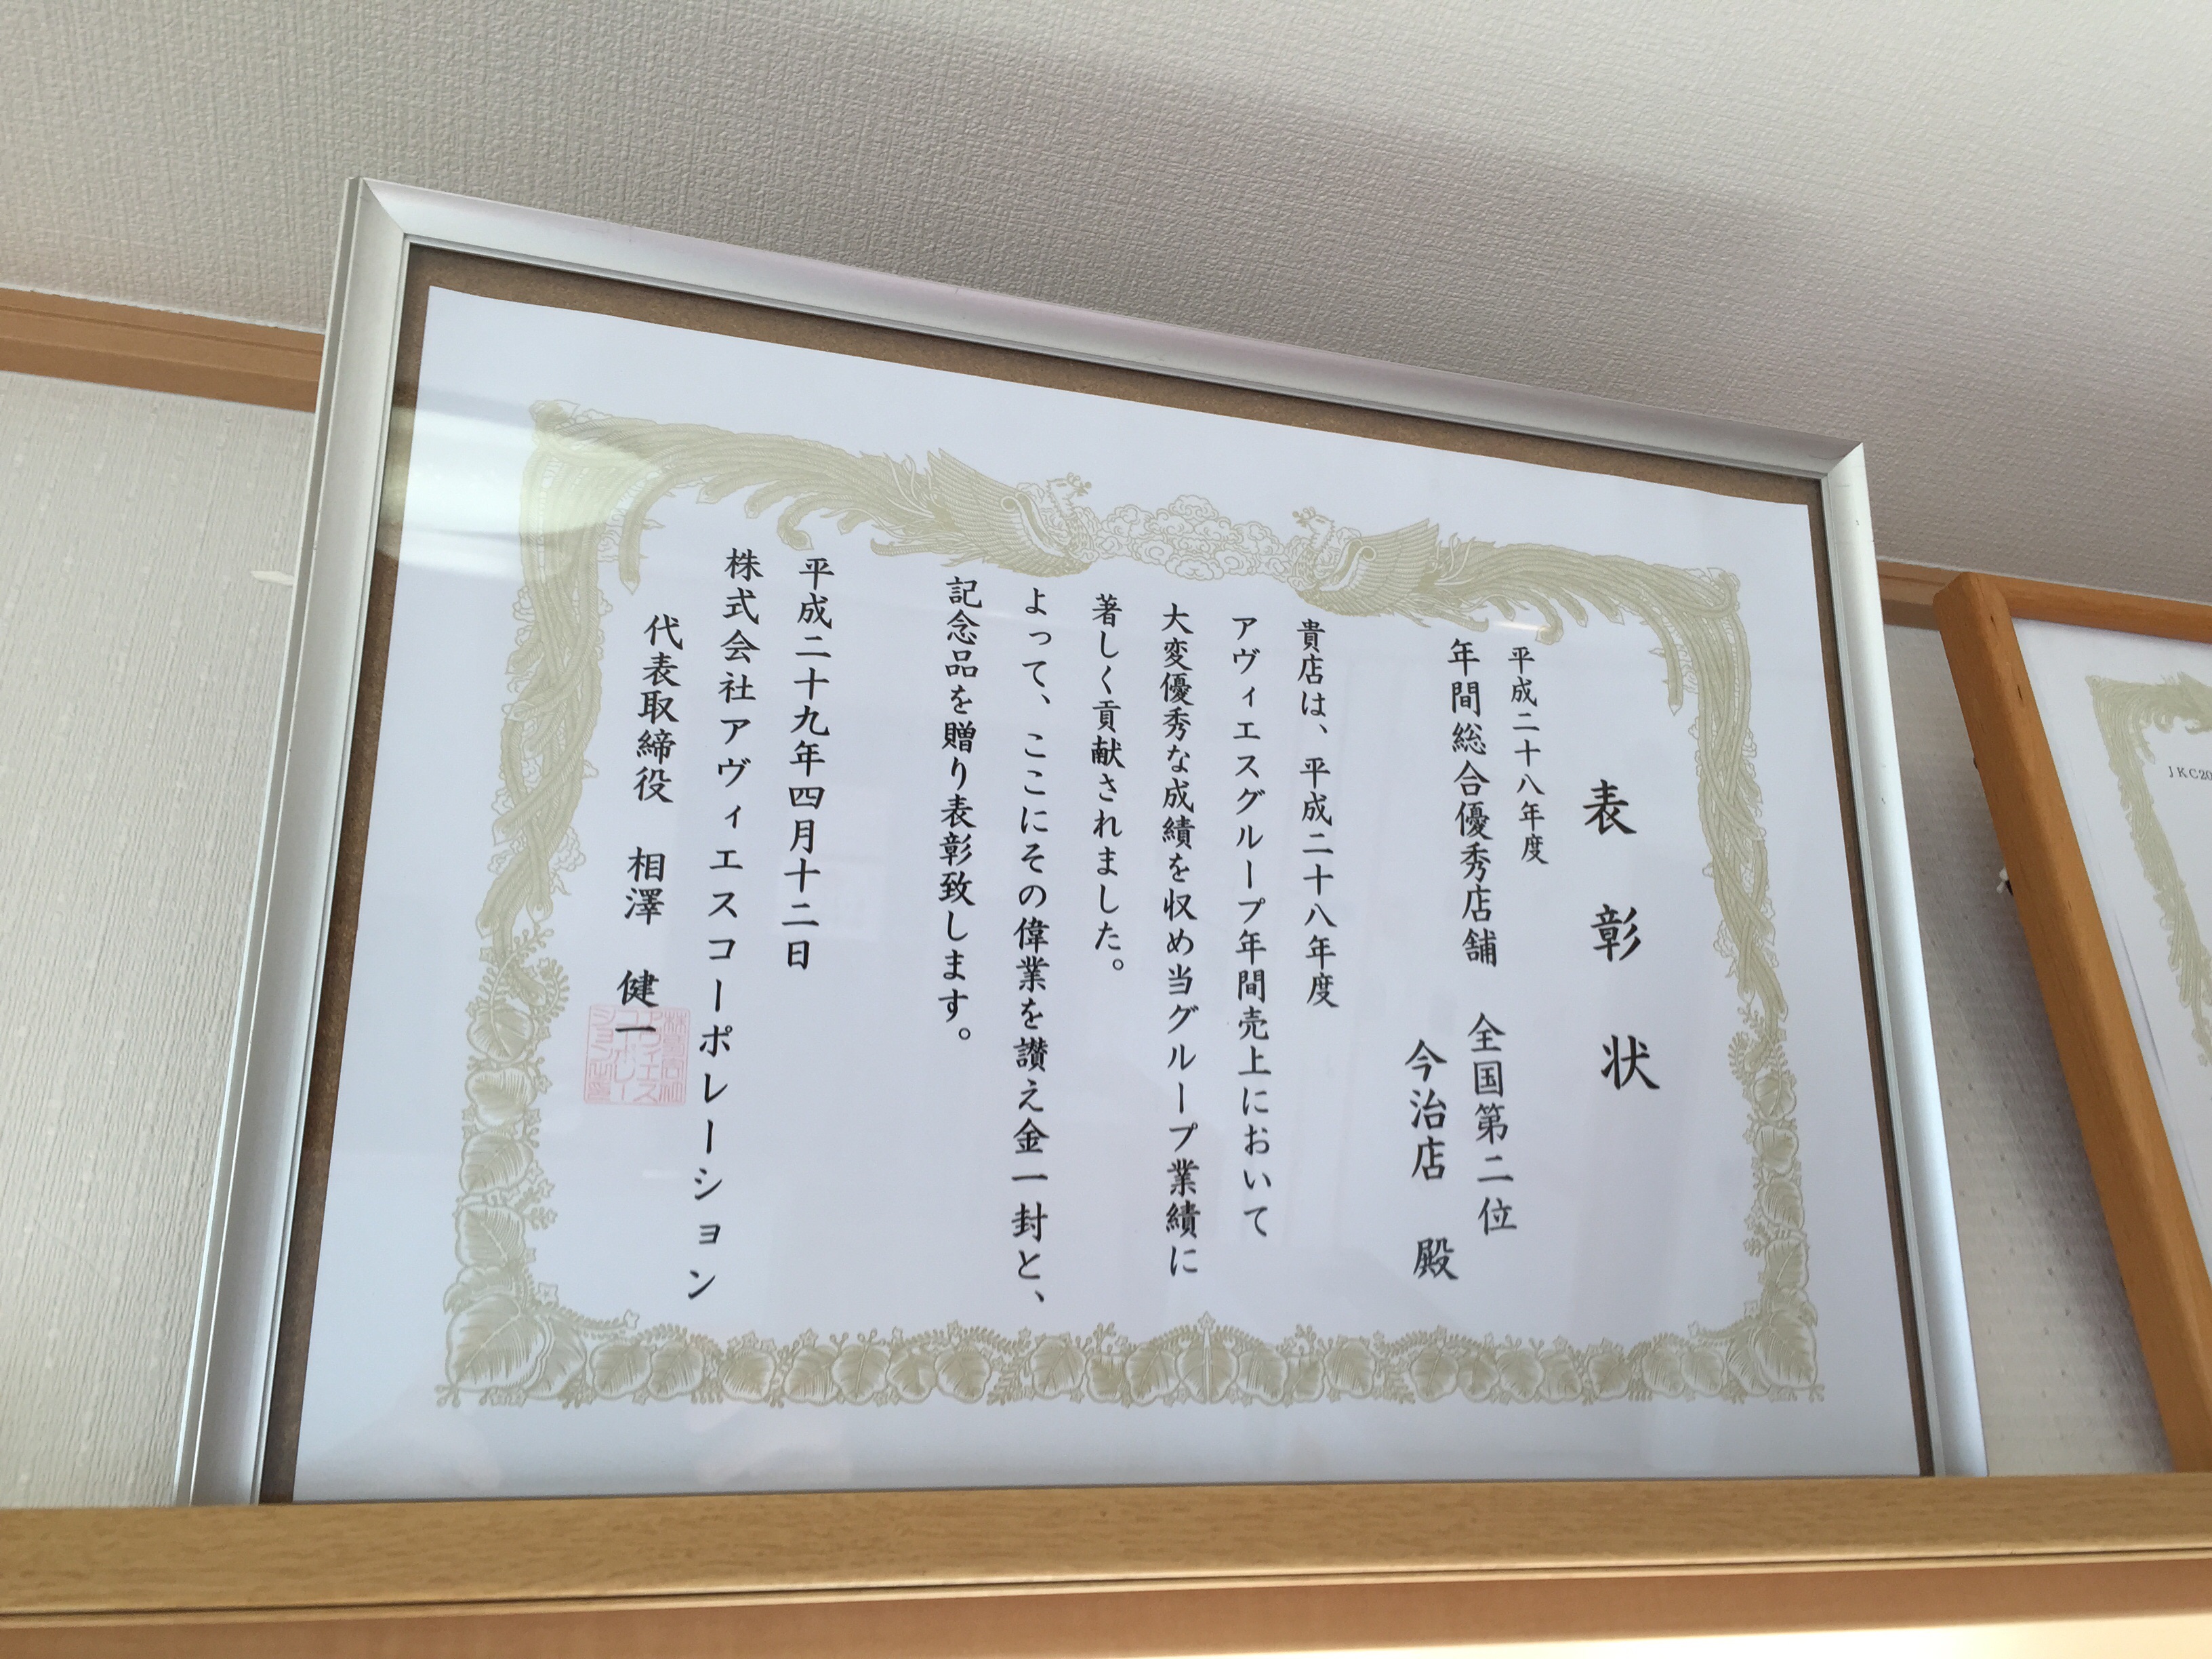 表彰状
平成二十八年度
年間総合優秀店舗　全国第二位
今治店　殿
貴店は、平成二十八年度
アヴィエスグループ年間売上において
大変優秀な成績を収め当グループ業績に
著しく貢献されました。
よって、ここにその偉業を讃え金一封と、
記念品を贈り表彰致します。
平成二十九年四月十二日
株式会社アヴィエスコーポレーション
代表取締役　相澤　健一
JKC20